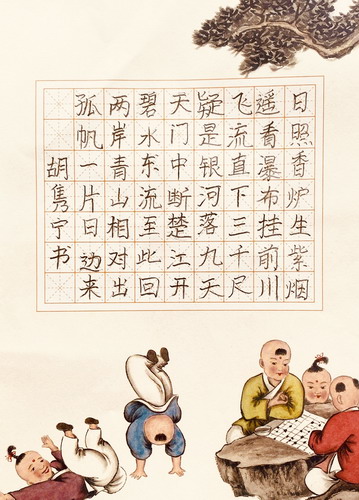 日照香炉生紫烟
遥看瀑布挂前川
飞流直下三千尺
疑是银河落九天
天门中断楚江开
碧水东流至此回
两岸青山相对出
孤帆一片日边来
胡隽宁书